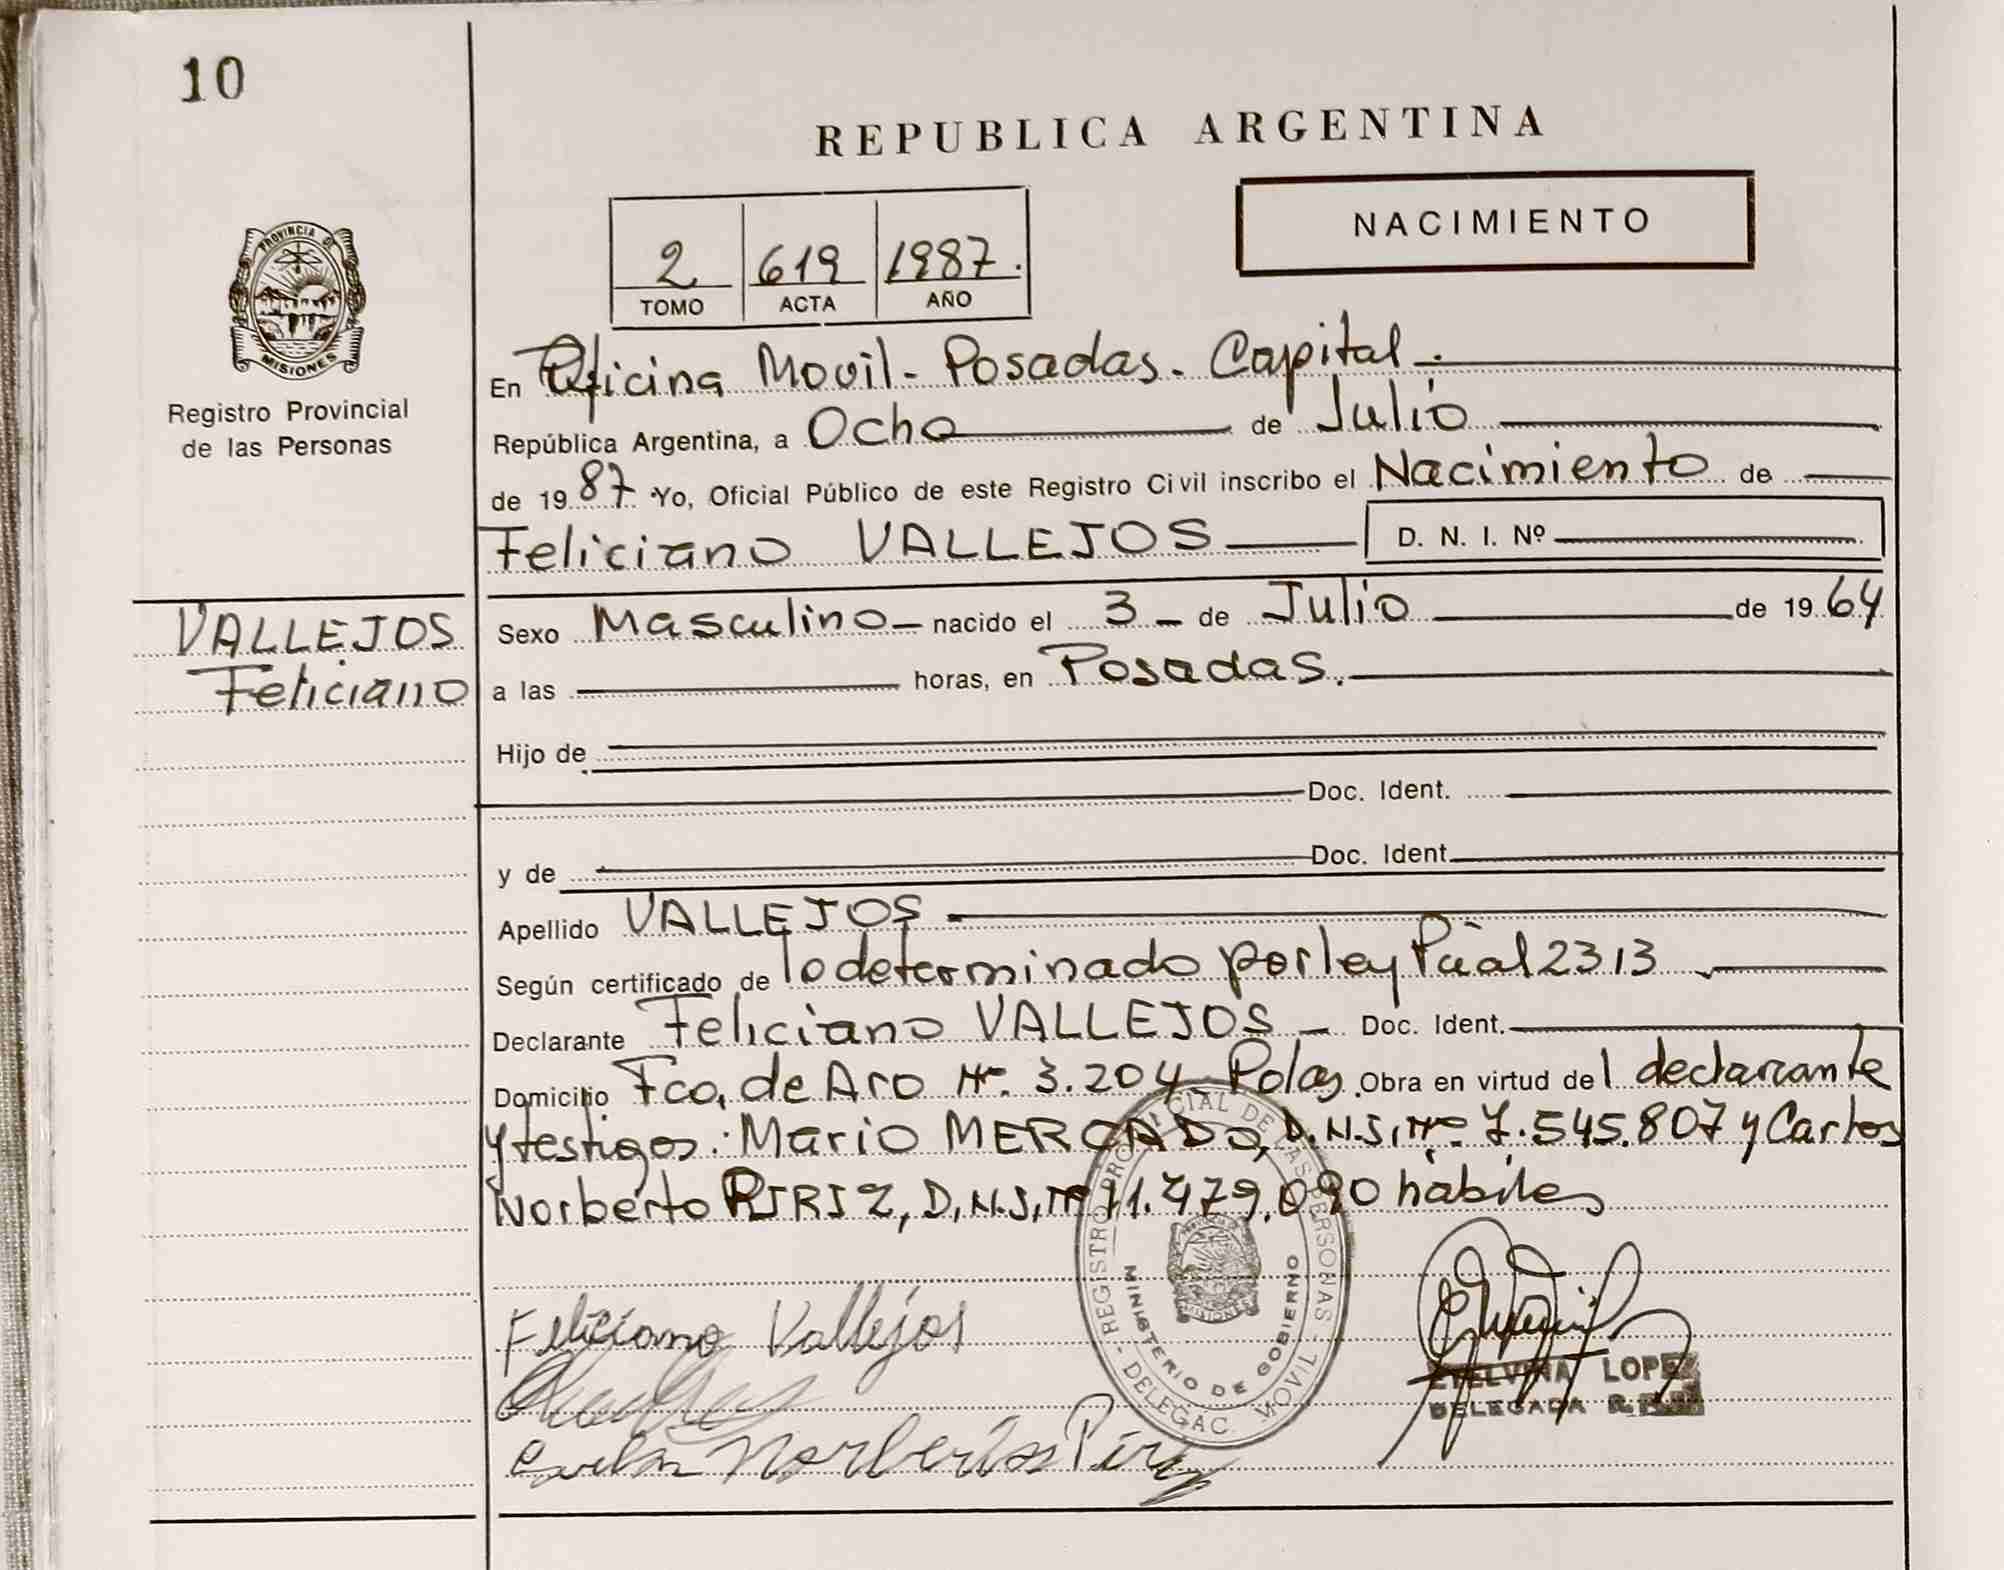 10
REPUBLICA ARGENTINA
NACIMIENTO
2 619 1987.
TOMO ACTA AÑO
PROVINCIA DE
MISIONES
Registro Provincial
de las Personas
En Oficina Movil - Posadas - Capital -
República Argentina, a Ocho de Julio
de 1987 Yo, Oficial Público de este Registro Civil inscribo el Nacimiento de
Feliciano VALLEJOS D. N. I. Nº
VALLEJOS
Feliciano
Sexo Masculino - nacido el 3 - de Julio de 1964
a las horas, en Posadas.
Hijo de
Doc. Ident.
y de Doc. Ident.
Apellido VALLEJOS
Según certificado de lo determinado por ley Pcial 2313
Declarante Feliciano VALLEJOS - Doc. Ident.
Domicilio Fco. de Aro Nº 3.204 Pdas Obra en virtud del declarante
y testigos: Mario MERCADO, D.N.I. Nº 7.545.807 y Carlos
Norberto PIRIZ, D.N.I. Nº 11.479.090 hábiles
REGISTRO PROVINCIAL DE LAS PERSONAS - DELEGAC. MOVIL -
MINISTERIO DE GOBIERNO
Feliciano Vallejos
Norberto Piriz
ETELVINA LOPEZ
DELEGADA